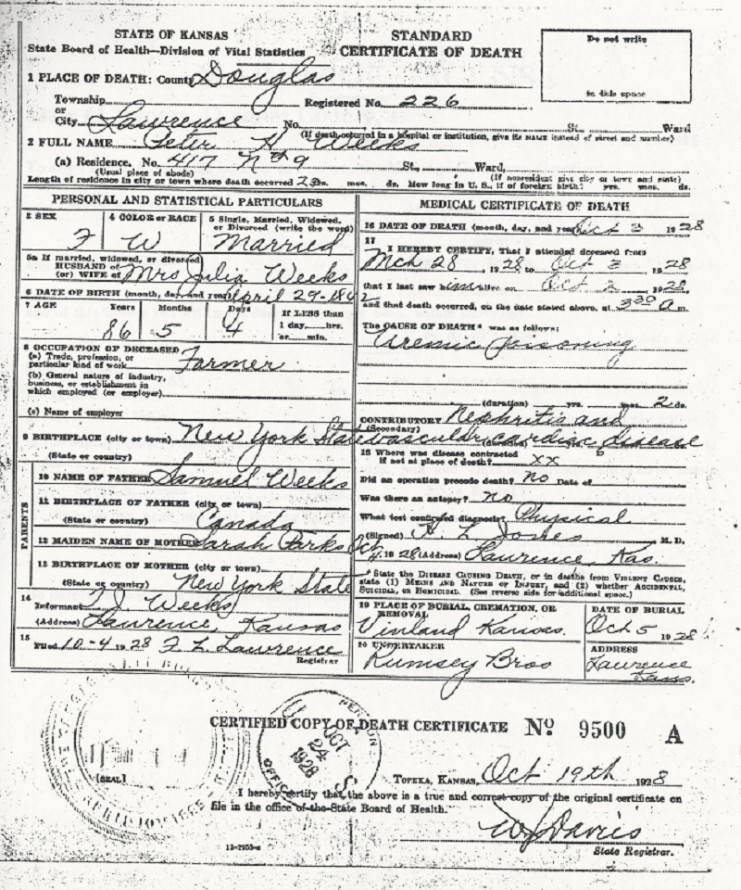 STATE OF KANSAS
State Board of Health—Division of Vital Statistics
STANDARD
CERTIFICATE OF DEATH
Do not write
in this space
1 PLACE OF DEATH: County Douglas
Township
Registered No. 226
or
City Lawrence No. St. Ward
(If death occurred in a hospital or institution, give its NAME instead of street and number)
2 FULL NAME Peter H Weeks
(a) Residence, No. 417 N# 9 St., Ward,
(Usual place of abode) (If nonresident give city or town and state)
Length of residence in city or town where death occurred yrs. mos. ds. How long in U. S., if of foreign birth? yrs. mos. ds.
PERSONAL AND STATISTICAL PARTICULARS
3 SEX
4 COLOR or RACE
5 Single, Married, Widowed, or Divorced (write the word)
W
Married
5a If married, widowed, or divorced
HUSBAND of
(or) WIFE of Mrs Julia Weeks
6 DATE OF BIRTH (month, day, and year) April 29-1842
7 AGE Years Months Days If LESS than
1 day, hrs.
or min.
86 5 4
8 OCCUPATION OF DECEASED
(a) Trade, profession, or
particular kind of work Farmer
(b) General nature of industry,
business, or establishment in
which employed (or employer)
(c) Name of employer
9 BIRTHPLACE (city or town) New York State
(State or country)
PARENTS
10 NAME OF FATHER Samuel Weeks
11 BIRTHPLACE OF FATHER (city or town)
(State or country) Canada
12 MAIDEN NAME OF MOTHER Sarah Parks
13 BIRTHPLACE OF MOTHER (city or town)
(State or country) New York State
14
Informant F J Weeks
(Address) Lawrence, Kansas
15
Filed 10-4 1928 F. L. Lawrence
Registrar
MEDICAL CERTIFICATE OF DEATH
16 DATE OF DEATH (month, day, and year) Oct 3 1928
17
I HEREBY CERTIFY, That I attended deceased from
Mch 28, 1928 to Oct 3 1928
that I last saw him alive on Oct 2 1928,
and that death occurred, on the date stated above, at 3:30 a m.
The CAUSE OF DEATH* was as follows:
Uremic poisoning
(duration) yrs. mos. 2 ds.
CONTRIBUTORY Nephritis and
(Secondary) vascular cardiac disease
18 Where was disease contracted
if not at place of death? XX
Did an operation precede death? No Date of
Was there an autopsy? No
What test confirmed diagnosis? Physical
(Signed) H. L. Jones M. D.
Oct 4, 1928 (Address) Lawrence Kas.
* State the DISEASE CAUSING DEATH, or in deaths from VIOLENT CAUSES, state (1) MEANS AND NATURE OF INJURY, and (2) whether ACCIDENTAL, SUICIDAL, or HOMICIDAL. (See reverse side for additional space.)
19 PLACE OF BURIAL, CREMATION, OR REMOVAL
DATE OF BURIAL
Vinland Kansas.
Oct 5 1928
20 UNDERTAKER
ADDRESS
Rumsey Bros
Lawrence
Kans.
CERTIFIED COPY OF DEATH CERTIFICATE No 9500 A
OCT
24
1928
[SEAL]
TOPEKA, KANSAS, Oct 19th, 1928
I hereby certify that the above is a true and correct copy of the original certificate on
file in the office of the State Board of Health.
W J Davis
State Registrar.